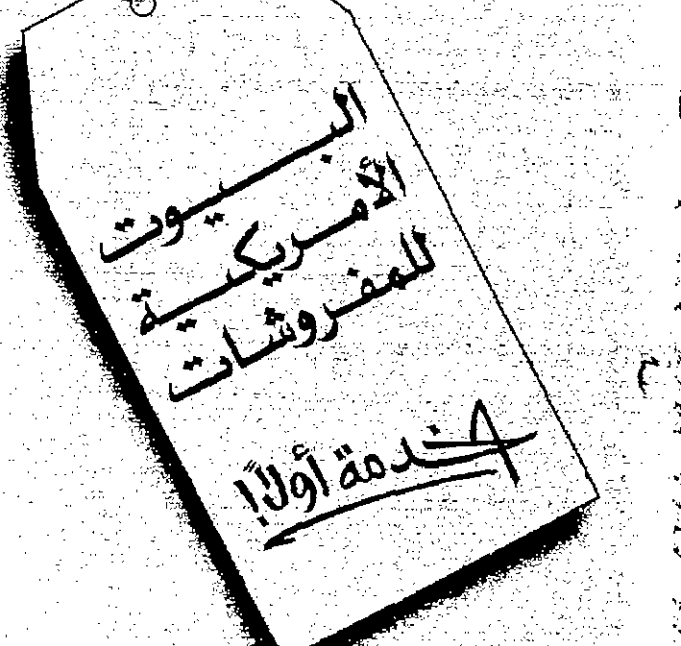 البيوت
الأمريكية
للمفروشات
الخدمة أولاً!